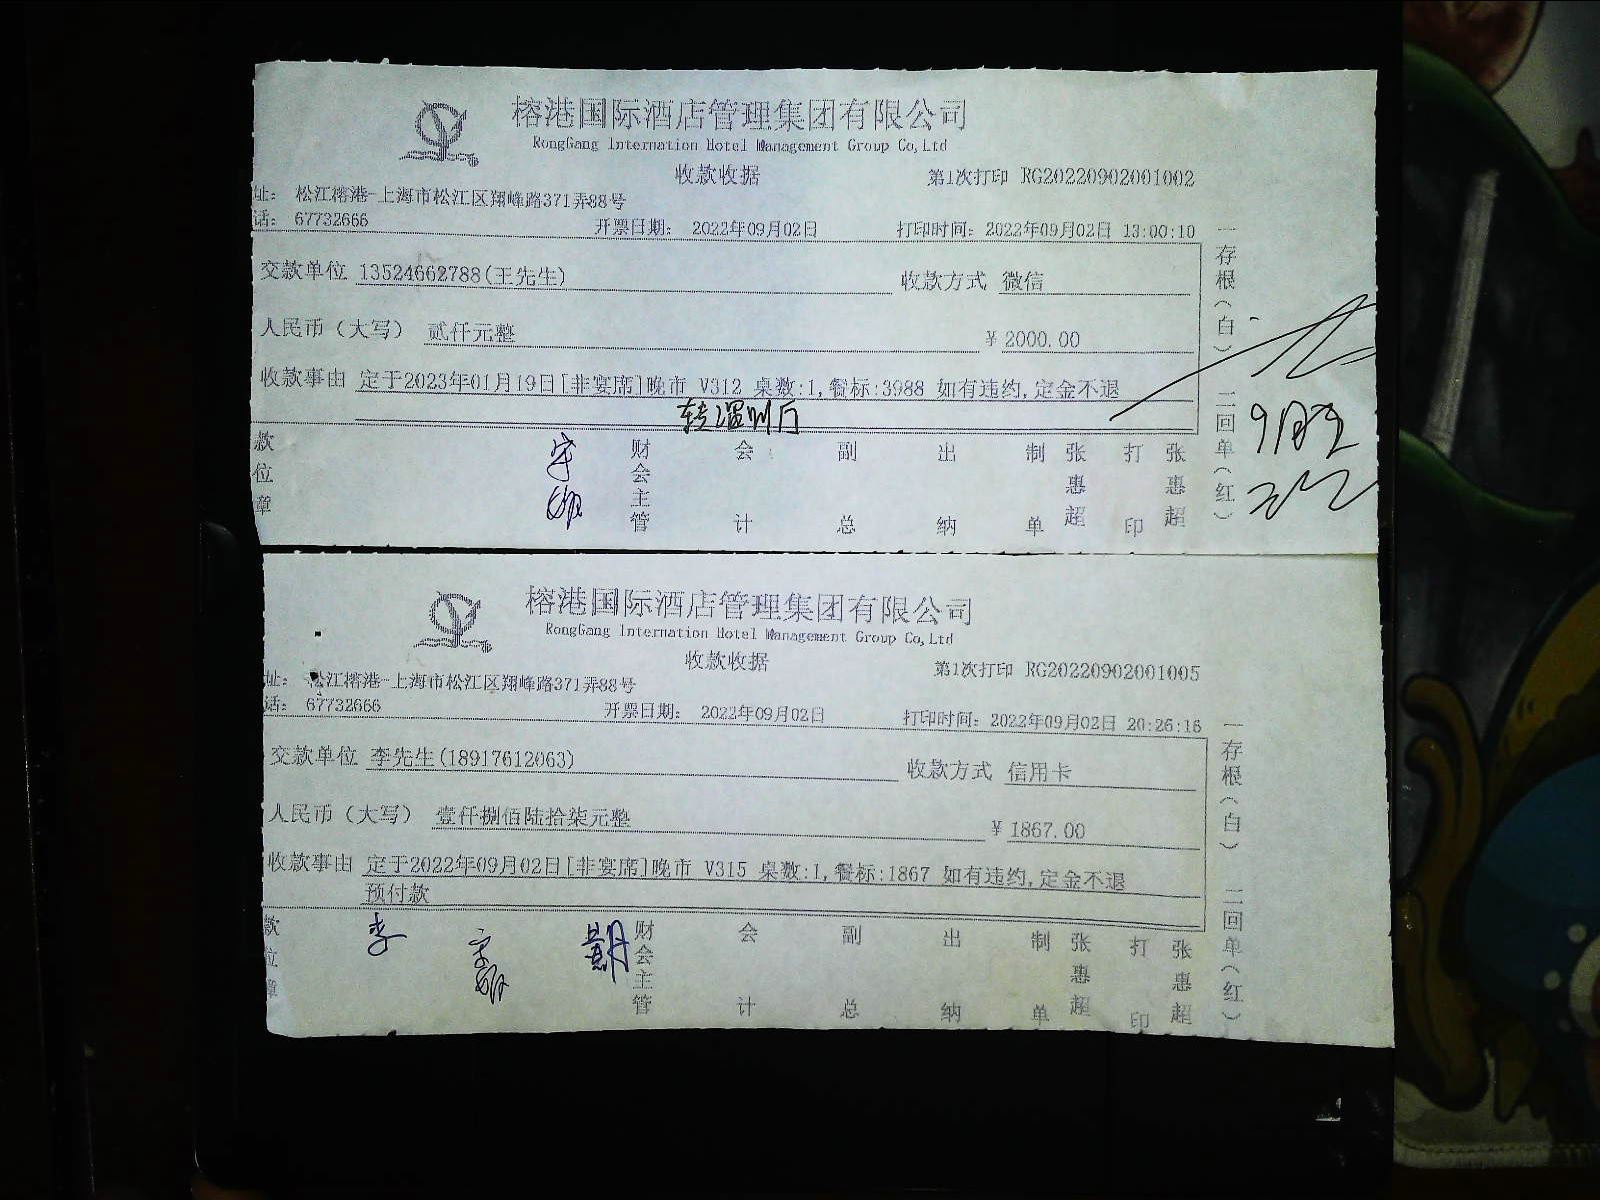 榕港国际酒店管理集团有限公司
RongGang Internation Hotel Management Group Co,Ltd
收款收据
第1次打印 RG20220902001002
址： 松江榕港-上海市松江区翔峰路371弄88号
话： 67732666
开票日期： 2022年09月02日
打印时间： 2022年09月02日 13:00:10
交款单位 13524662788(王先生)
收款方式 微信
人民币（大写） 贰仟元整
¥ 2000.00
收款事由 定于2023年01月19日[非宴席]晚市 V312 桌数:1,餐标:3988 如有违约,定金不退
转温州厅
款位章
财会主管
会计
副总
出纳
制单
张惠超
打印
张惠超
一存根（白） 二回单（红）
榕港国际酒店管理集团有限公司
RongGang Internation Hotel Management Group Co,Ltd
收款收据
第1次打印 RG20220902001005
址： 松江榕港-上海市松江区翔峰路371弄88号
话： 67732666
开票日期： 2022年09月02日
打印时间： 2022年09月02日 20:26:16
交款单位 李先生(18917612063)
收款方式 信用卡
人民币（大写） 壹仟捌佰陆拾柒元整
¥ 1867.00
收款事由 定于2022年09月02日[非宴席]晚市 V315 桌数:1,餐标:1867 如有违约,定金不退
预付款
款位章
李
财会主管
会计
副总
出纳
制单
张惠超
打印
张惠超
一存根（白） 二回单（红）